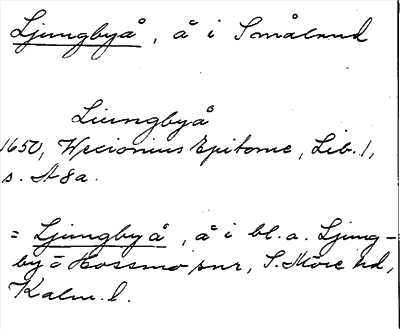 Ljungbyå, å i Småland
Liungbyå
1650, Wexionius Epitome, Lib. 1,
s. A 8 a.
= Ljungbyå, å i bl. a. Ljung-
by o Hossmo snr, S. Möre hd,
Kalm. l.